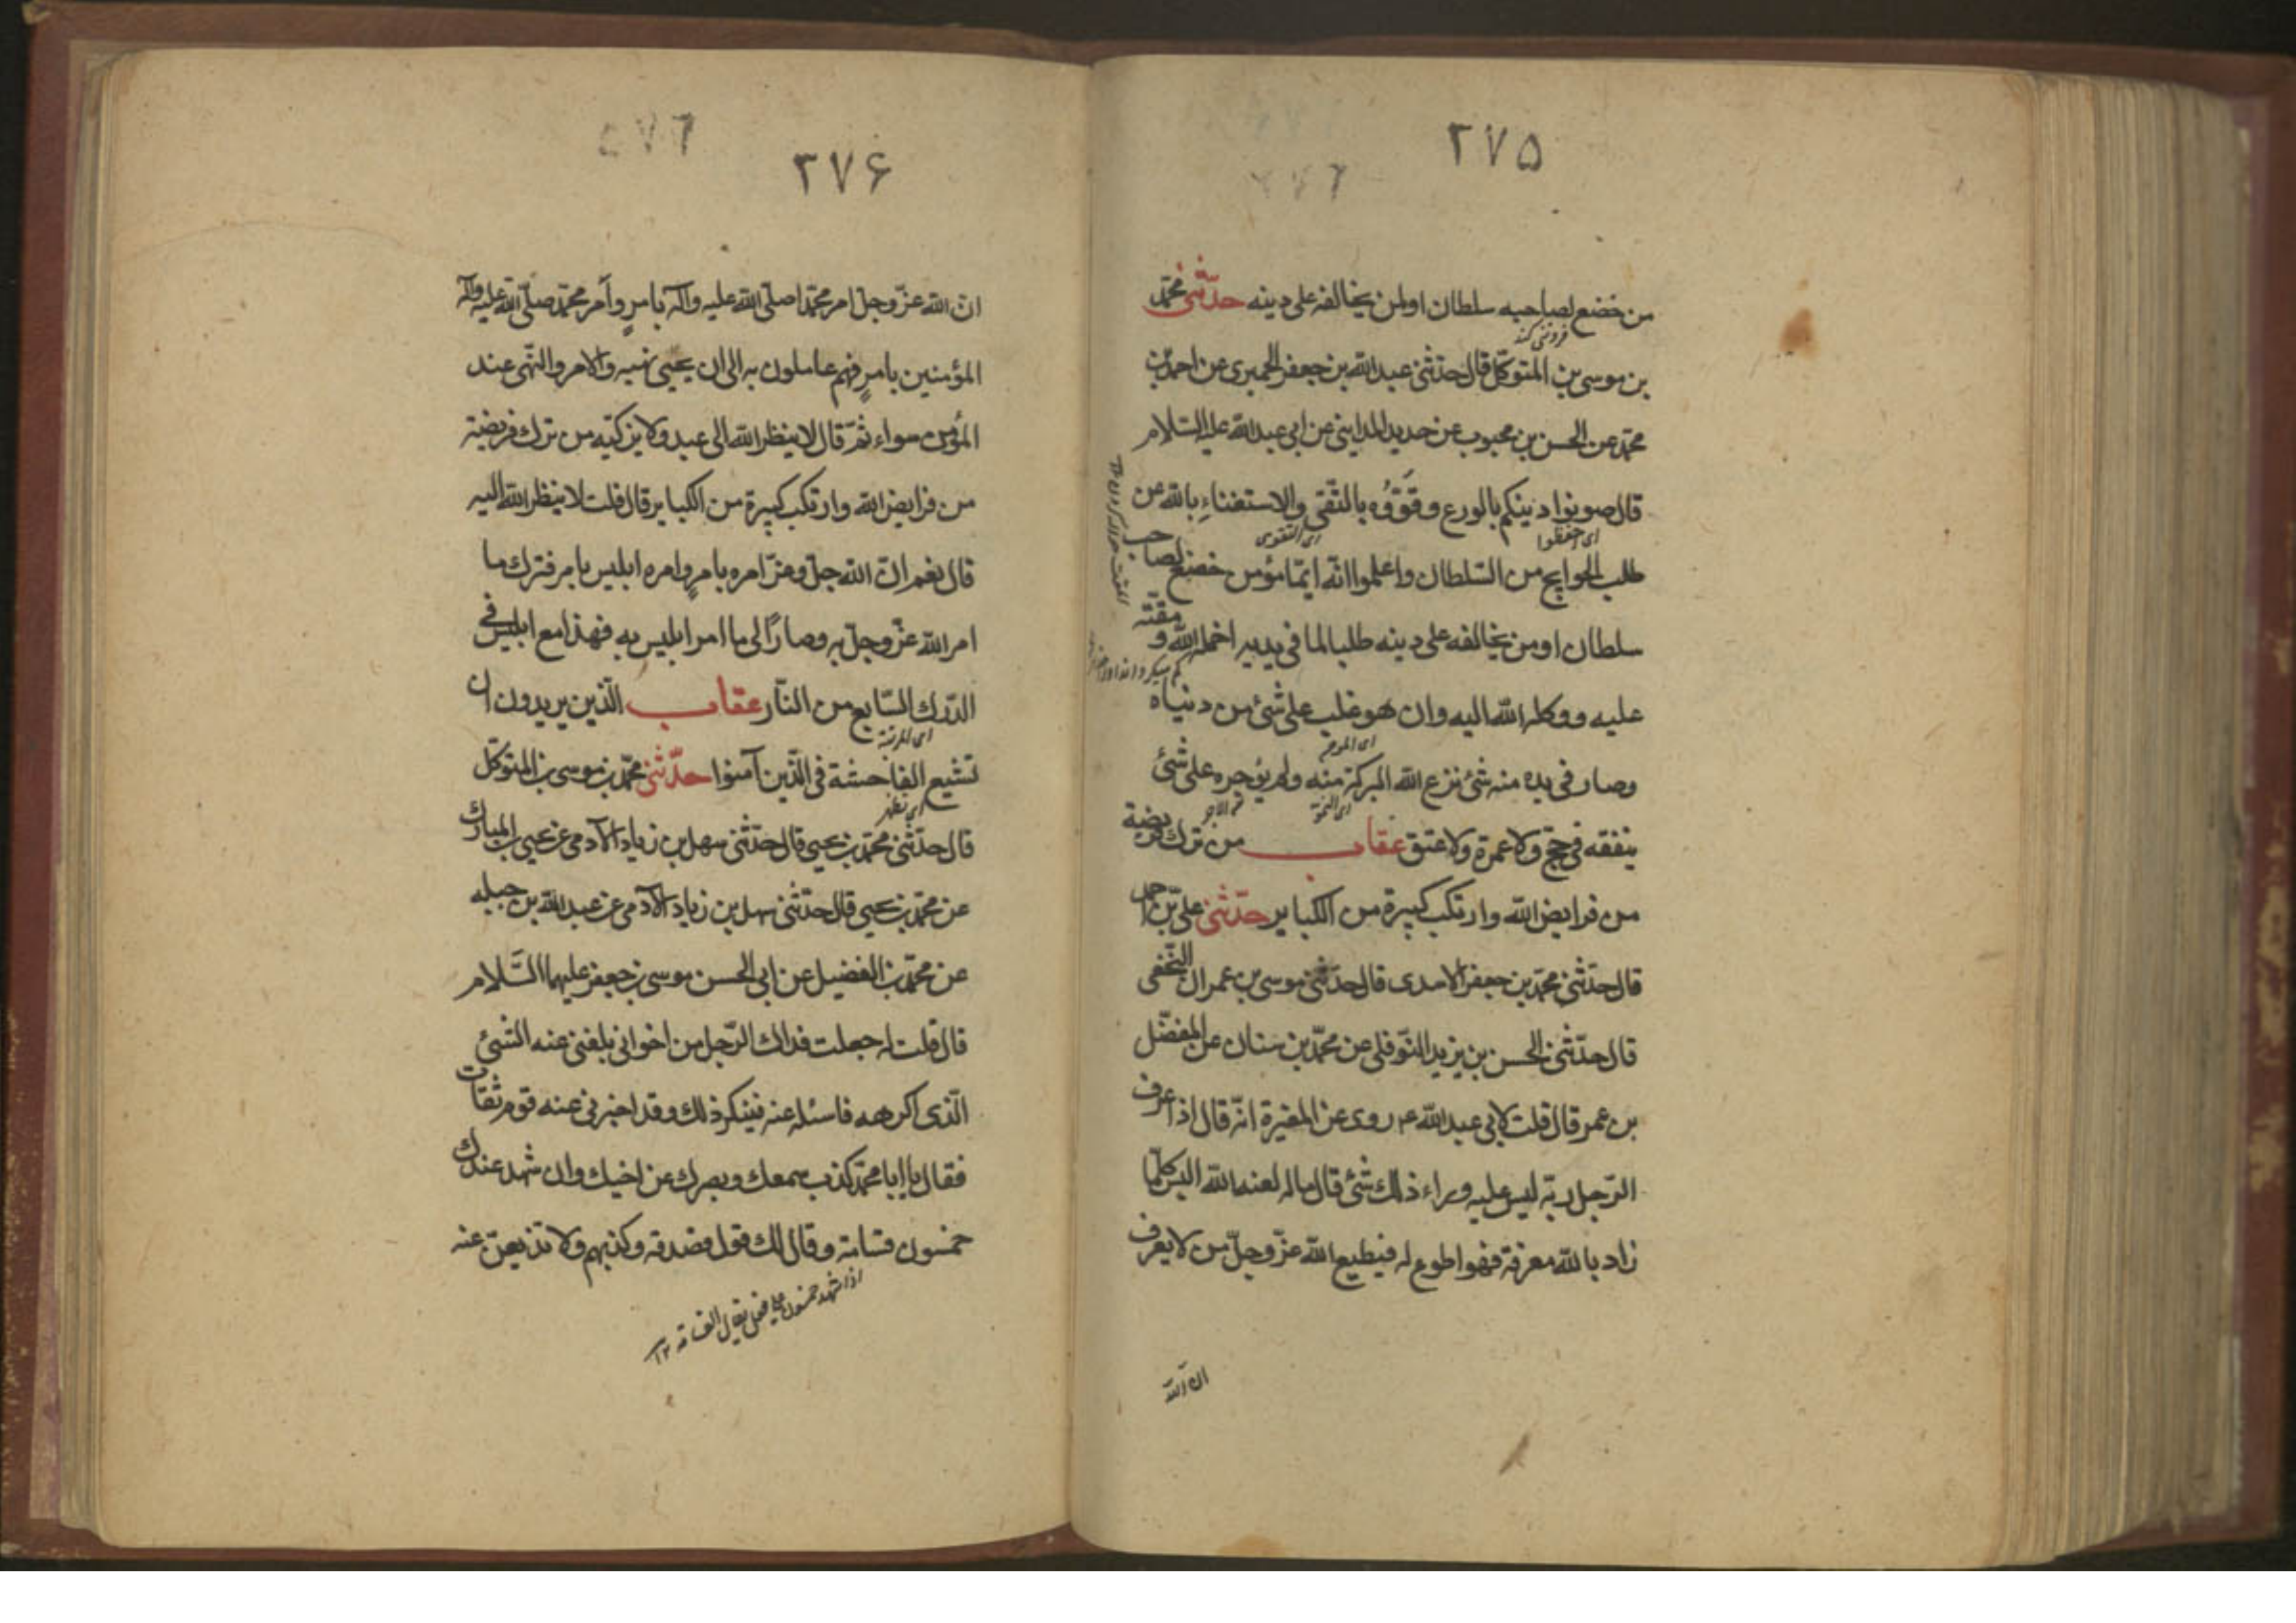 ٢٧۵
من خضع لصاحبه سلطان اولمن يخالفه على دينه حدّثنى محمّد
فروتنى كند
بن موسى بن المتوكّل قال حدّثنى عبد الله بن جعفر الحميرى عن احمد بن
محمّد عن الحسن بن محبوب عن حديد المداينى عن ابى عبد الله عليه السّلام
قال صونوا دينكم بالورع وقوّوه بالتّقى والاستغناء بالله عن
اى احفظوا اى التقوى
طلب الحوايج من السّلطان واعلموا انّه ايّما مؤمن خضع لصاحب
سلطان او من يخالفه على دينه طلبا لما فى يديه اخمله الله و مقّته
عليه ووكله الله اليه وان هو غلب على شئ من دنياه
وصار فى يده منه شئ نزع الله البركة منه ولم يؤجره على شئ
ينفقه فى حجّ ولا عمرة ولا عتق عقاب من ترك فريضة
من فرايض الله وارتكب كبيرة من الكباير حدّثنى علىّ بن احمد
قال حدّثنى محمّد بن جعفر الاسدى قال حدّثنى موسى بن عمران النّخعى
قال حدّثنى الحسن بن يزيد النّوفلى عن محمّد بن سنان عن المفضّل
بن عمر قال قلت لابى عبد الله عم روى عن المغيرة انّه قال اذا عرف
الرّجل ربّه ليس عليه وراء ذلك شئ قال ماله لعنه الله اليس كلّما
زاد بالله معرفة فهو اطوع له فيطيع الله عزّ وجلّ من لا يعرف
انّ الله
٢٧۶
انّ الله عزّ وجلّ امر محمّدا صلّى الله عليه وآله بامرٍ وأمر محمّد صلّى الله عليه وآله
المؤمنين بامرٍ فهم عاملون به الى ان يجيئ نهيه والامر والنّهى عند
المؤمن سواء ثمّ قال لا ينظر الله الى عبد ولا يزكّيه من ترك فريضة
من فرايض الله وارتكب كبيرة من الكباير قال قلت لا ينظر الله اليه
قال نعم انّ الله جلّ وعزّ امره بامرٍ وامره ابليس بامر فترك ما
امر الله عزّ وجلّ به وصار الى ما امر ابليس به فهذا مع ابليس فى
الدّرك السّابع من النّار عقاب الّذين يريدون ان
تشيع الفاحشة فى الّذين آمنوا حدّثنى محمّد بن موسى بن المتوكّل
اى تظهر
قال حدّثنى محمّد بن يحيى قال حدّثنى سهل بن زياد الآدمى عن يحيى بن المبارك
عن محمّد بن يحيى قال حدّثنى سهل بن زياد الآدمى عن عبد الله بن جبله
عن محمّد بن الفضيل عن ابى الحسن موسى بن جعفر عليهما السّلام
قال قلت له جعلت فداك الرّجل من اخوانى بلغنى عنه الشئ
الّذى اكرهه فاسئله عنه فينكر ذلك وقد اخبرنى عنه قوم ثقات
فقال يا ابا محمّد كذب سمعك وبصرك عن اخيك وان شهد عندك
خمسون قسامة وقال لك قول فصدقه وكذبهم ولا تذيعنّ عنه